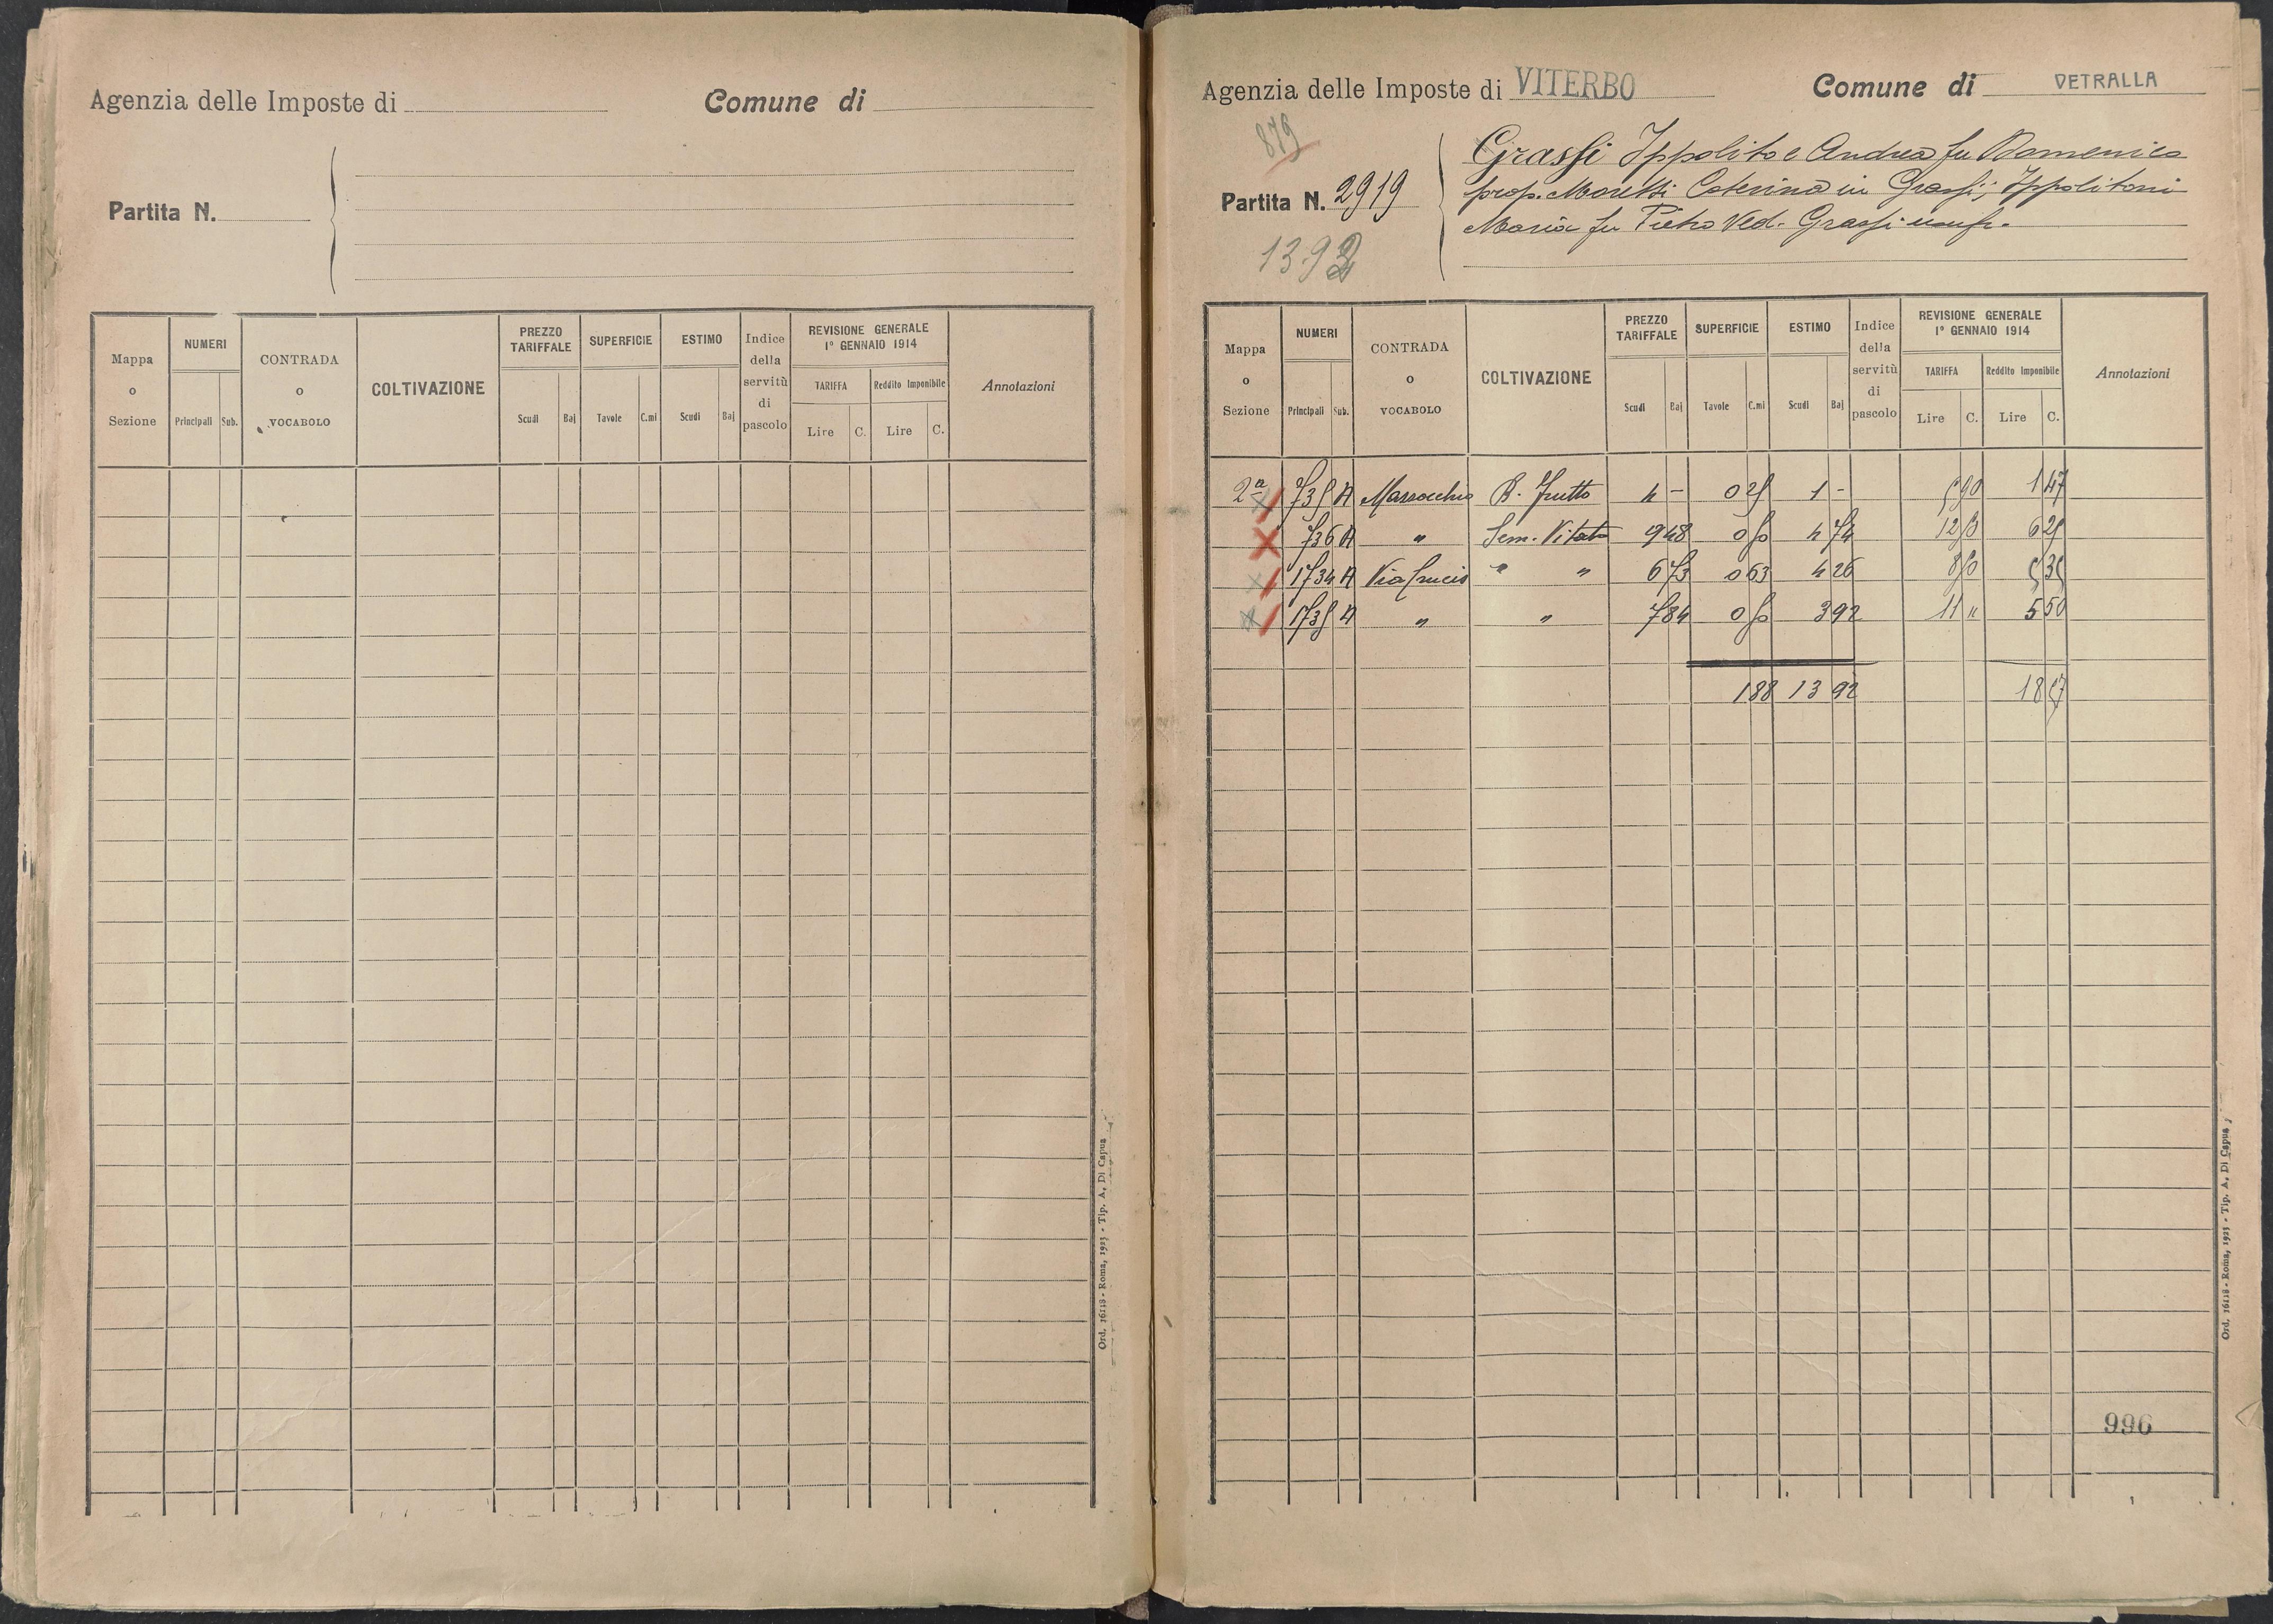 Agenzia delle Imposte di
Comune di
Partita N.
Mappa o Sezione
NUMERI
Principali Sub.
CONTRADA o VOCABOLO
COLTIVAZIONE
PREZZO TARIFFALE
Scudi Baj
SUPERFICIE
Tavole C.mi
ESTIMO
Scudi Baj
Indice della servitù di pascolo
REVISIONE GENERALE
1° GENNAIO 1914
TARIFFA Reddito Imponibile
Lire C. Lire C.
Annotazioni
Ord. 16118 - Roma, 1923 - Tip. A. Di Capua
Agenzia delle Imposte di VITERBO
Comune di VETRALLA
879
Partita N. 2919
1392
Grassi Ippolito e Andrea fu Domenico
prop. Moretti Caterina in Grassi; Ippolitoni
Maria fu Pietro Ved. Grassi usuf.
Mappa o Sezione
NUMERI
Principali Sub.
CONTRADA o VOCABOLO
COLTIVAZIONE
PREZZO TARIFFALE
Scudi Baj
SUPERFICIE
Tavole C.mi
ESTIMO
Scudi Baj
Indice della servitù di pascolo
REVISIONE GENERALE
1° GENNAIO 1914
TARIFFA Reddito Imponibile
Lire C. Lire C.
Annotazioni
2a 735 A B. frutto 4 - 0 25 1 - 5 90 1 47
736 A " Sem. Vitato 9 48 0 50 4 74 12 50 6 25
1734 A Via Crucis " " 6 73 0 63 4 26 8 50 5 35
1735 A " " 7 84 0 50 3 92 11 " 5 50
1 88 13 92 18 57
996
Ord. 16118 - Roma, 1923 - Tip. A. Di Capua